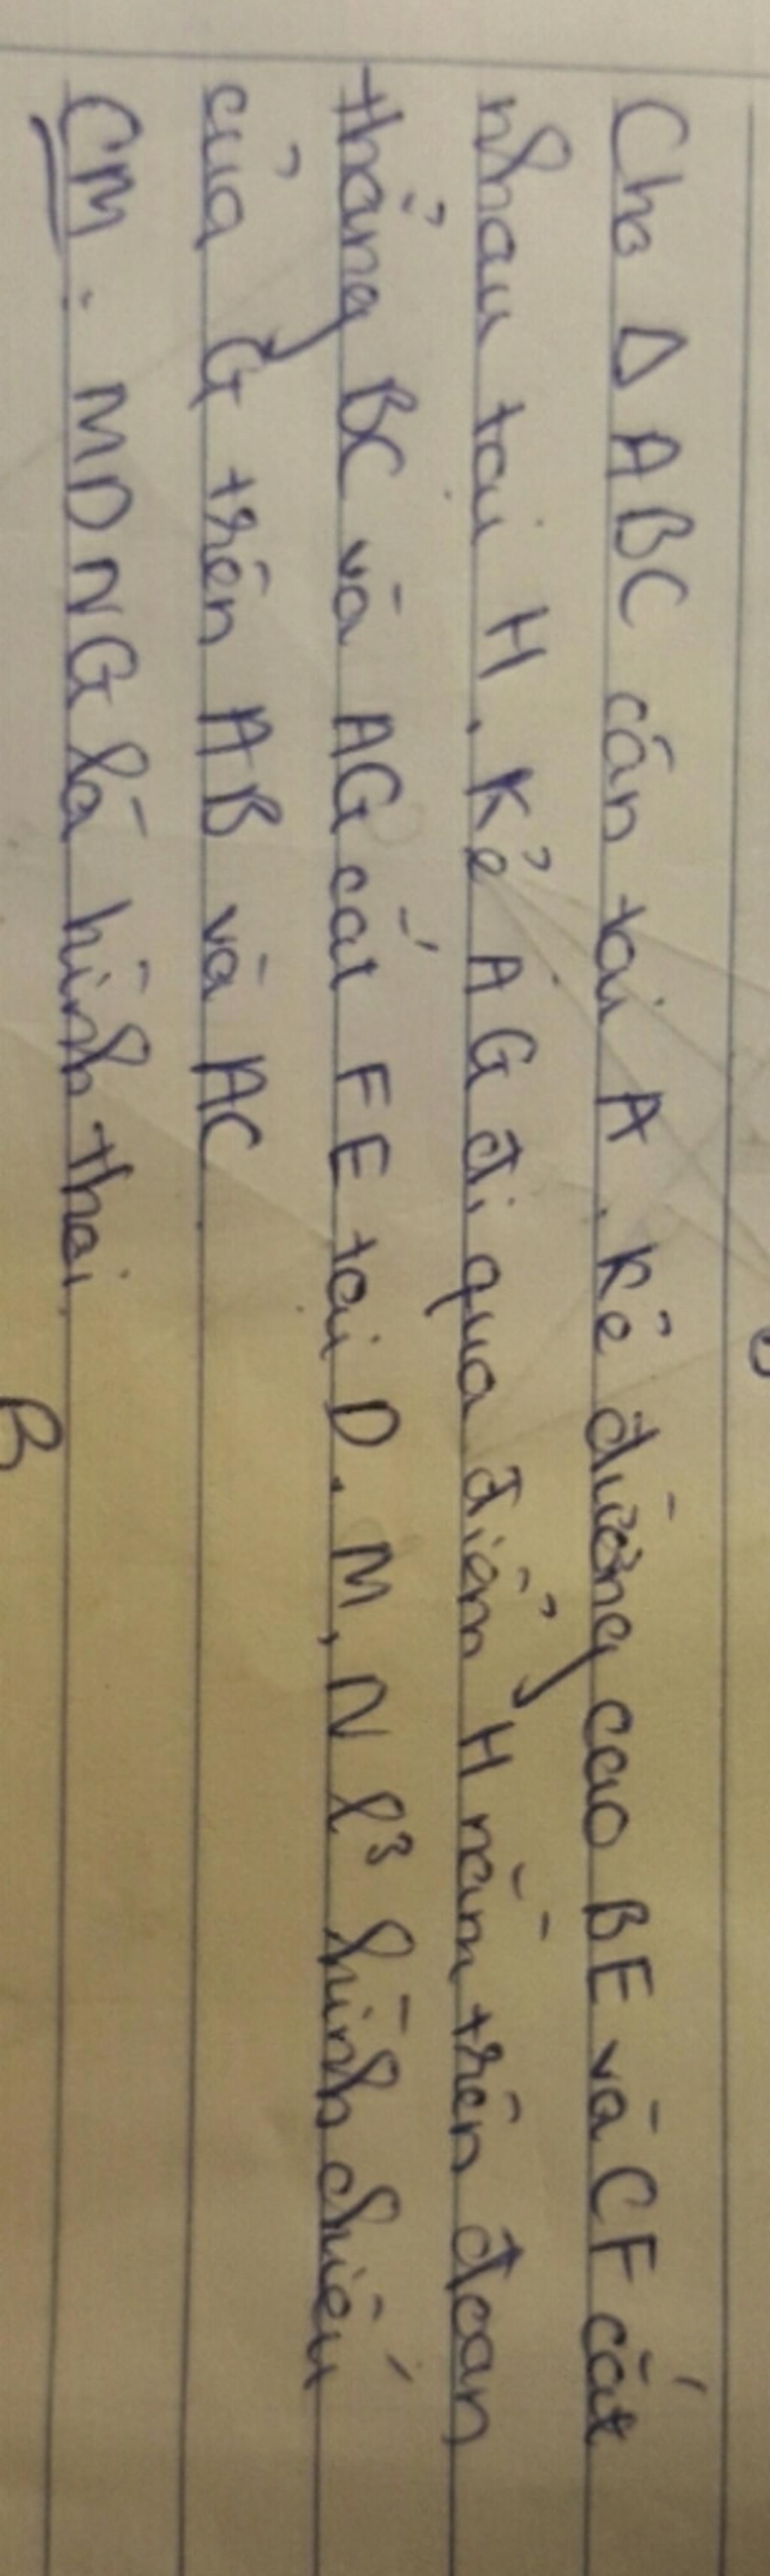 Cho Δ ABC cân tại A, kẻ đường cao BE và CF cắt
nhau tại H, kẻ AG đi qua điểm H nằm trên đoạn
thẳng BC và AG cắt FE tại D. M, N l³ hình chiếu
của G trên AB và AC.
CM: MDNG là hình thoi.
B